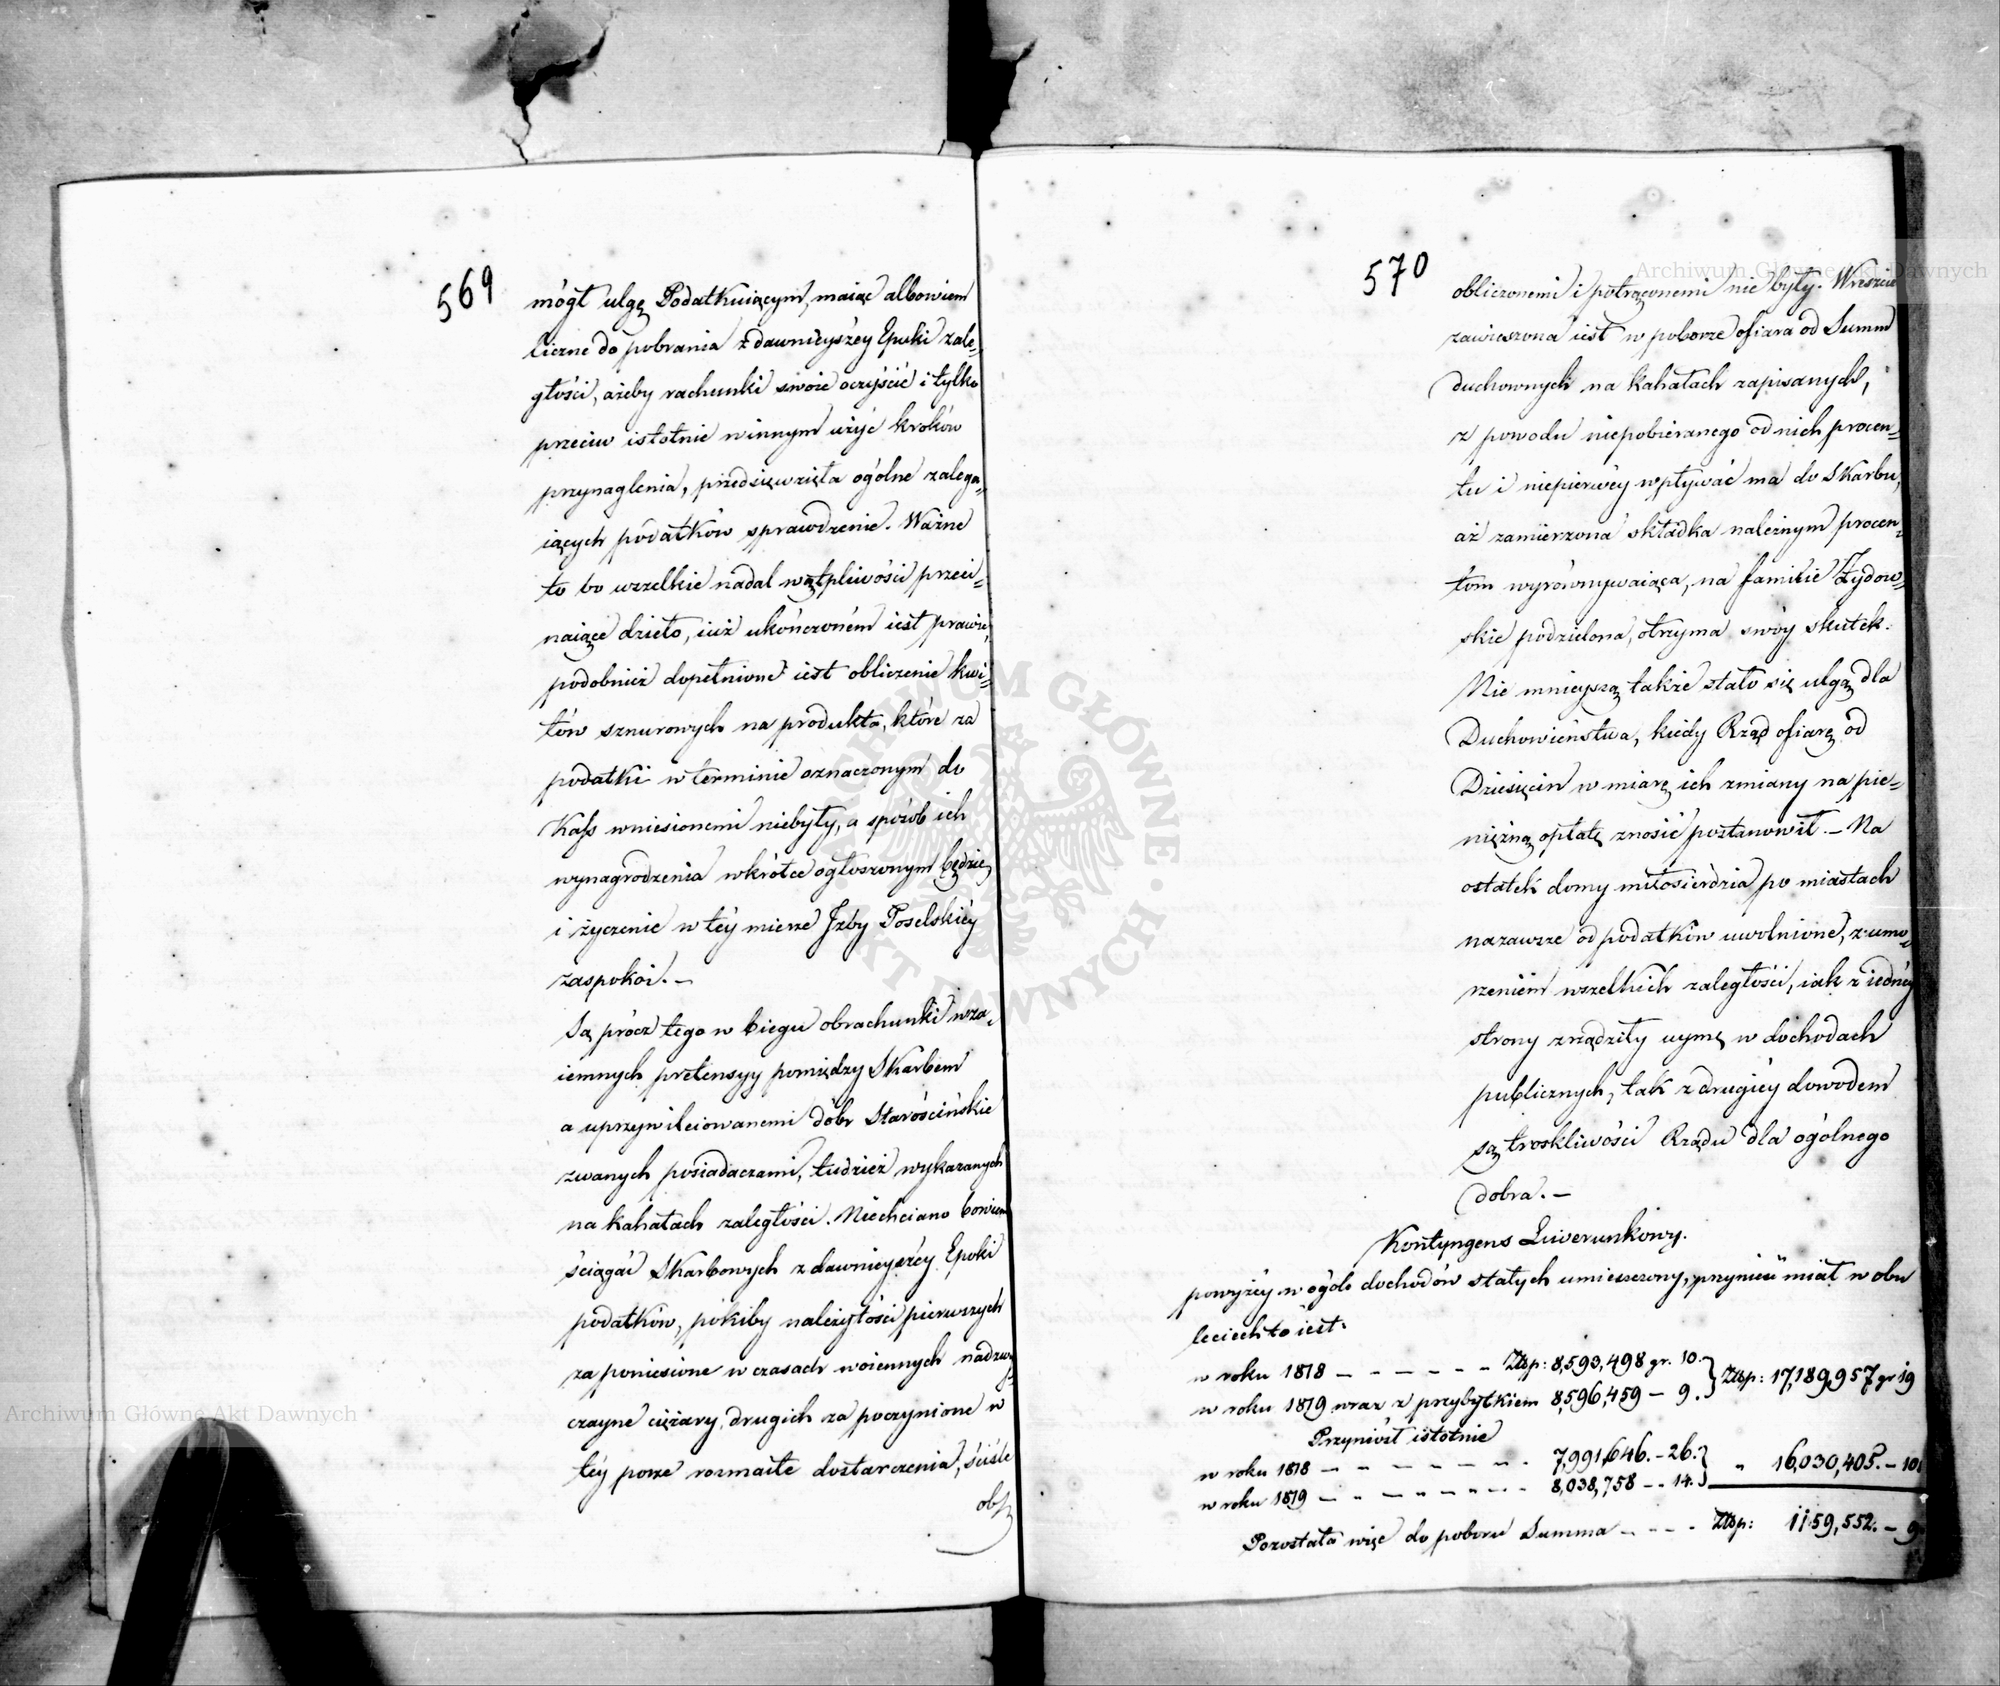 569
mógł ulgę Podatkuiącym, maiąc albowiem
liczne do pobrania z dawnieyszéy Epoki zale-
głości, ażeby rachunki swoie oczyścić i tylko
przeciw istotnie winnym użyć kroków
przynaglenia, przedsięwzięła ogólne zalega-
iących podatków sprawdzenie. Ważne
to bo wszelkie nadal wątpliwości przeci-
naiące dzieło, iuż ukończoném iest prawie,
podobnież dopełnione iest obliczenie kwi-
tów sznurowych na produkta, które za
podatki w terminie oznaczonym do
Kass wniesionemi niebyły, a sposób ich
wynagrodzenia wkrótce ogłoszonym będzie,
i życzenie w téy mierze Jzby Poselskiéy
zaspokoi. –
Są prócz tego w biegu obrachunki wza-
iemnych pretensyy pomiędzy Skarbem
a uprzywileiowanemi dobr Starościńskie
zwanych posiadaczami, tudzież wykazanych
na kahałach zaległości. Niechciano bowiem
ściągać Skarbowych z dawnieyszéy Epoki
podatków, pókiby należytości pierwszych
za poniesione w czasach woiennych nadzwy-
czayne ciężary, drugich za poczynione w
téy porze rozmaite dostarczenia, ściśle
570
obliczonemi i potrąconemi nie były. Wreszcie
zawieszona iest w poborze ofiara od Summ
duchownych na kahałach zapisanych,
z powodu niepobieranego od nich procen-
tu i niepierwéy wpływać ma do Skarbu,
aż zamierzona składka należnym procen-
tom wyrównywaiąca, na familie Żydow-
skie podzielona, otrzyma swóy skutek.
Nie mnieyszą także stało się ulgą dla
Duchowieństwa, kiedy Rząd ofiarę od
Dziesięcin w miarę ich zmiany na pie-
niężną opłatę znosić postanowił. – Na
ostatek domy miłosierdzia po miastach
nazawsze od podatków uwolnione, z umo-
rzeniem wszelkich zaległości, iak z iednéy
strony zrządziły uymę w dochodach
publicznych, tak z drugiéy dowodem
są troskliwości Rządu dla ogólnego
dobra. –
Kontyngens Liwerunkowy.
powyżéy w ogóle dochodów stałych umieszczony, przynieść miał w obu
leciech to iest:
w roku 1818 – – – – – – Złłp: 8,593,498 gr. 10. } Złłp: 17,189,957 gr 19
w roku 1819 wraz z przybytkiem 8,596,459 – 9.
Przyniosł istotnie
w roku 1818 – – – – – – – 7,991,646. – 26. } „ 16,030,405. – 10
w roku 1819 – – – – – – – 8,038,758 – – 14.
Pozostała więc do poboru Summa – – – – Złłp: 1159,552. – 9
Archiwum Główne Akt Dawnych
Archiwum Główne Akt Dawnych
ARCHIWUM GŁÓWNE AKT DAWNYCH